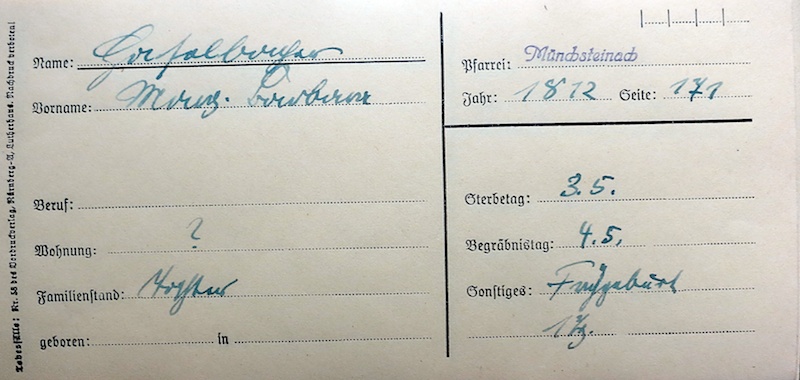 Name:
Vorname: Marg. Barbara
Beruf:
Wohnung: ?
Familienstand: Tochter
geboren: in
Pfarrei: Münchsteinach
Jahr: 1812 Seite: 171
Sterbetag: 3.5.
Begräbnistag: 4.5.
Sonstiges: Frühgeburt
Todesfälle: Nr. 58 des Vordruckverlag, Nürnberg-A, Lutherhaus. Nachdruck verboten!